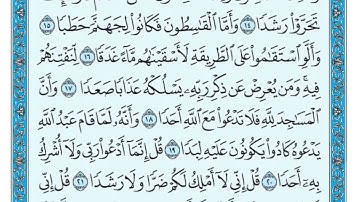 تَحَرَّوْا۟ رَشَدًا ١٤ وَأَمَّا ٱلْقَٰسِطُونَ فَكَانُوا۟ لِجَهَنَّمَ حَطَبًا ١٥
وَأَلَّوِ ٱسْتَقَٰمُوا۟ عَلَى ٱلطَّرِيقَةِ لَأَسْقَيْنَٰهُم مَّآءً غَدَقًا ١٦ لِّنَفْتِنَهُمْ
فِيهِ وَمَن يُعْرِضْ عَن ذِكْرِ رَبِّهِۦ يَسْلُكْهُ عَذَابًا صَعَدًا ١٧ وَأَنَّ
ٱلْمَسَٰجِدَ لِلَّهِ فَلَا تَدْعُوا۟ مَعَ ٱللَّهِ أَحَدًا ١٨ وَأَنَّهُۥ لَمَّا قَامَ عَبْدُ ٱللَّهِ
يَدْعُوهُ كَادُوا۟ يَكُونُونَ عَلَيْهِ لِبَدًا ١٩ قُلْ إِنَّمَآ أَدْعُوا۟ رَبِّى وَلَآ أُشْرِكُ
بِهِۦٓ أَحَدًا ٢٠ قُلْ إِنِّى لَآ أَمْلِكُ لَكُمْ ضَرًّا وَلَا رَشَدًا ٢١ قُلْ إِنِّى